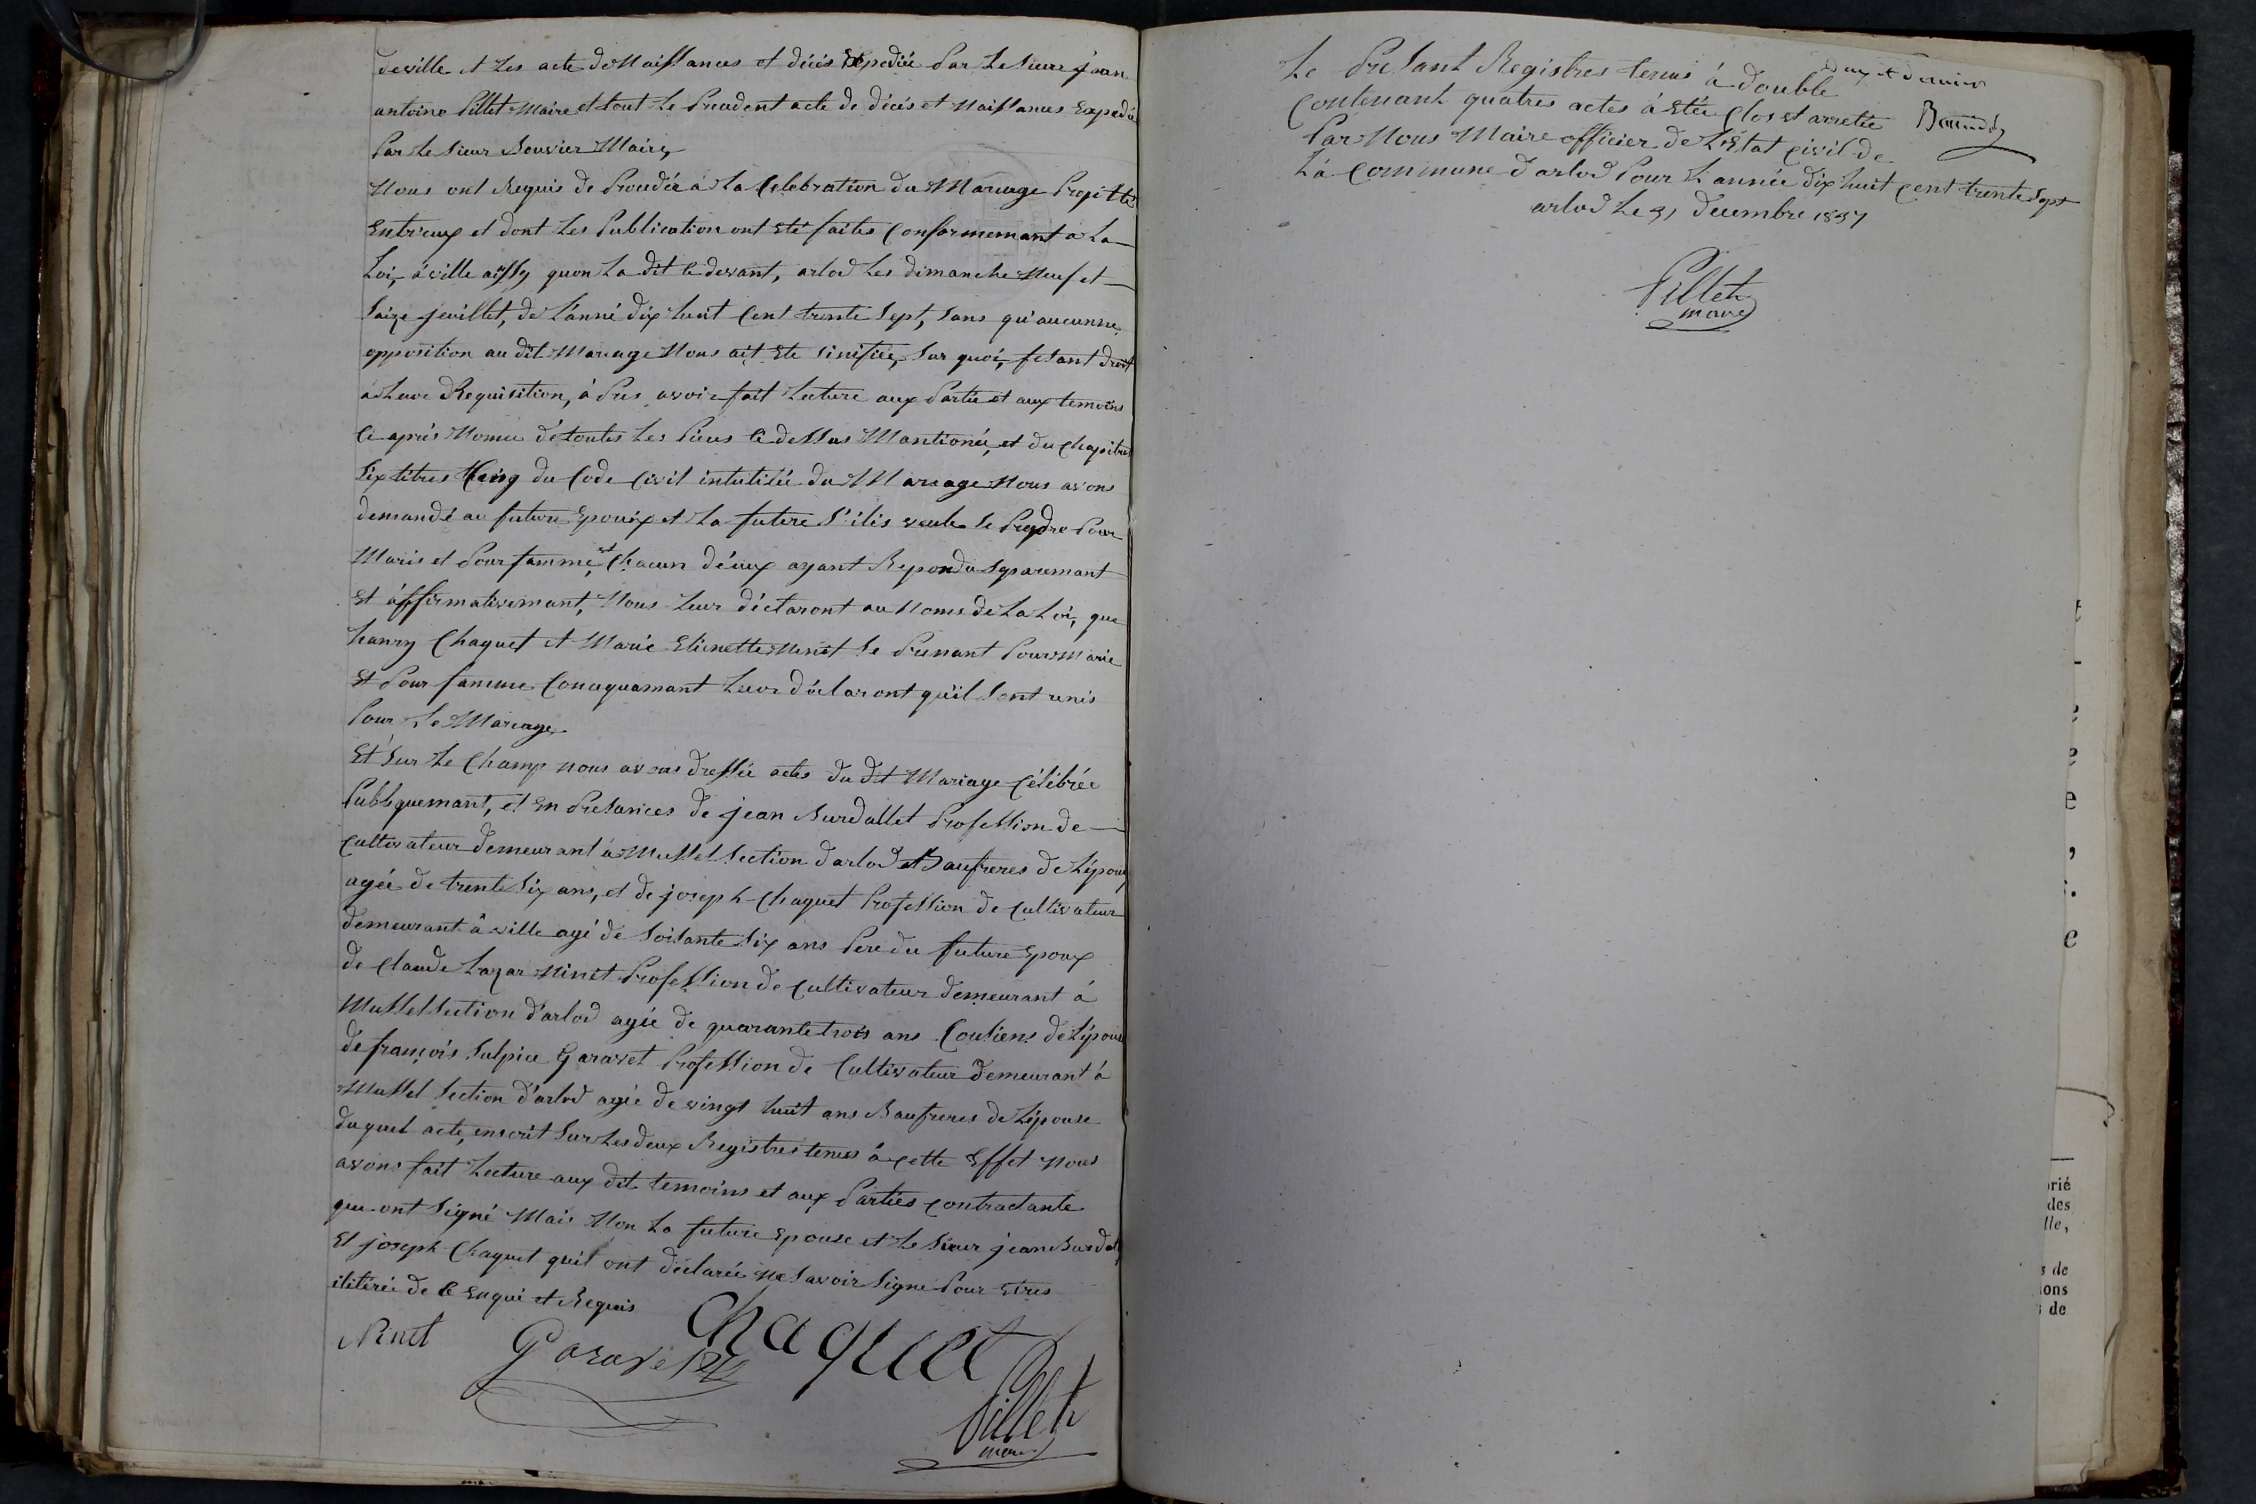 deville et Les acte de Naissances et décès Expediée Par Le Sieur jean
antoine Pillet Maire et tout Le Preudent acte de décés et Naissances Expediée
Par Le Sieur Bouvier Maire,
Nous ont Requis de Proudée à La Celebration du Mariage Projetté
Entreeux et dont Les Publication ont Eté faites Conformemant a La
Loi, à ville aissy quon La dit ci devant, arlod Les dimanche Neuf et
Saize jeuillet, de L'anné dix huit Cent trente Sept, Sans qu'aucunne
opposition au dit Mariage Nous ait Ete Sinifiée, Sur quoi, fesant droit
à Leur Requisition, à Pres avoir fait Lecture aux Partie et aux temoins
Ci après Nomée de toutes Les Pieces Ci dessus Mantionée, et du Chapitre
Six titres Cinq du Code Civil intutilée du Mariage Nous avons
demandé au future Epouix et La future S'ilis veule Se Preydre Pour
Maris et Pour famme, et Chacun d'éeux ayant Repondu Separemant
Et affirmativemant, Nous Leur déclaront au Noms de La Loi, que
henry Chaquet et Marie Etienette Ninet Se Prenant Pour Marie
Et Pour famme Concequamant Leur déclaront qu'il Sont unis
Pour Le Mariage
Et Sur Le Champ nous avons dressée actes du dit Mariage Célébrée
Publiquemant, et En Presances de jean Burdallet Profession de
Cultivateur demeurant à Mussel Section d'arlod et Baufreres de L'époux
agée de trente Six ans, et de joseph Chaquet Profession de Cultivateur
demeurant à ville agé de Soisante Six ans Pere du future Epoux
de Claude Lazar Ninet Profession de Cultivateur demeurant à
Mussel Section d'arlod agée de quarante trois ans Cousiens de L'épouse
de françois Sulpice Garavet Profession de Cultivateur demeurant à
Mussel Section d'arlod agée de vingt huit ans Baufreres de L'épouse
duquel acte, enscrit Sur Les deux Registres tenus à Cette Effet Nous
avons fait Lecture aux dit temoins et aux Parties Contractante
qui ont Signé Mais Non La future Epouse et Le Sieur jean Burdal
Et joseph Chaquet qu'il ont déclarée Ne Savoir Signe Pour Etres
ilitérée de Ce Enqui et Requis
Ninet Garavet Chaquet
Pillet
maire
Deux et Dernier
Le Presant Registres tenus à double
Contenant quatres actes à Etée Clos et arretée
Par Nous Maire officier de L'Etat Civil de
La Commune d'arlod Pour L'année dix huit Cent trente Sept
arlod Le 31 decembre 1837
Pillet
maire